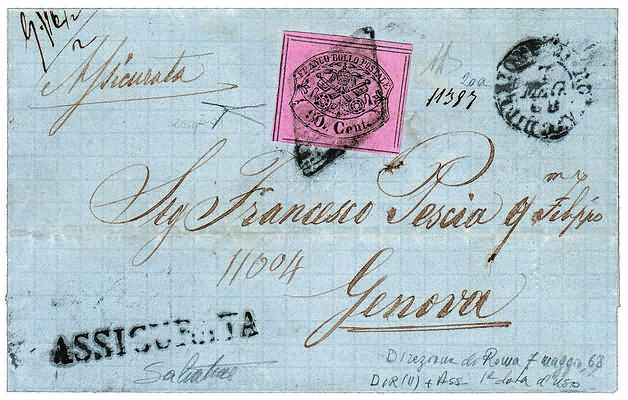 Assicurata
FRANCO BOLLO POSTALE
80. Cent.
200
11387
MAG
68
Sig Francesco Pescia q m Filippo
11604
Genova
ASSICURATA
Direzione di Roma 7 maggio 68
DIR(II) + Ass 1ª data d'uso